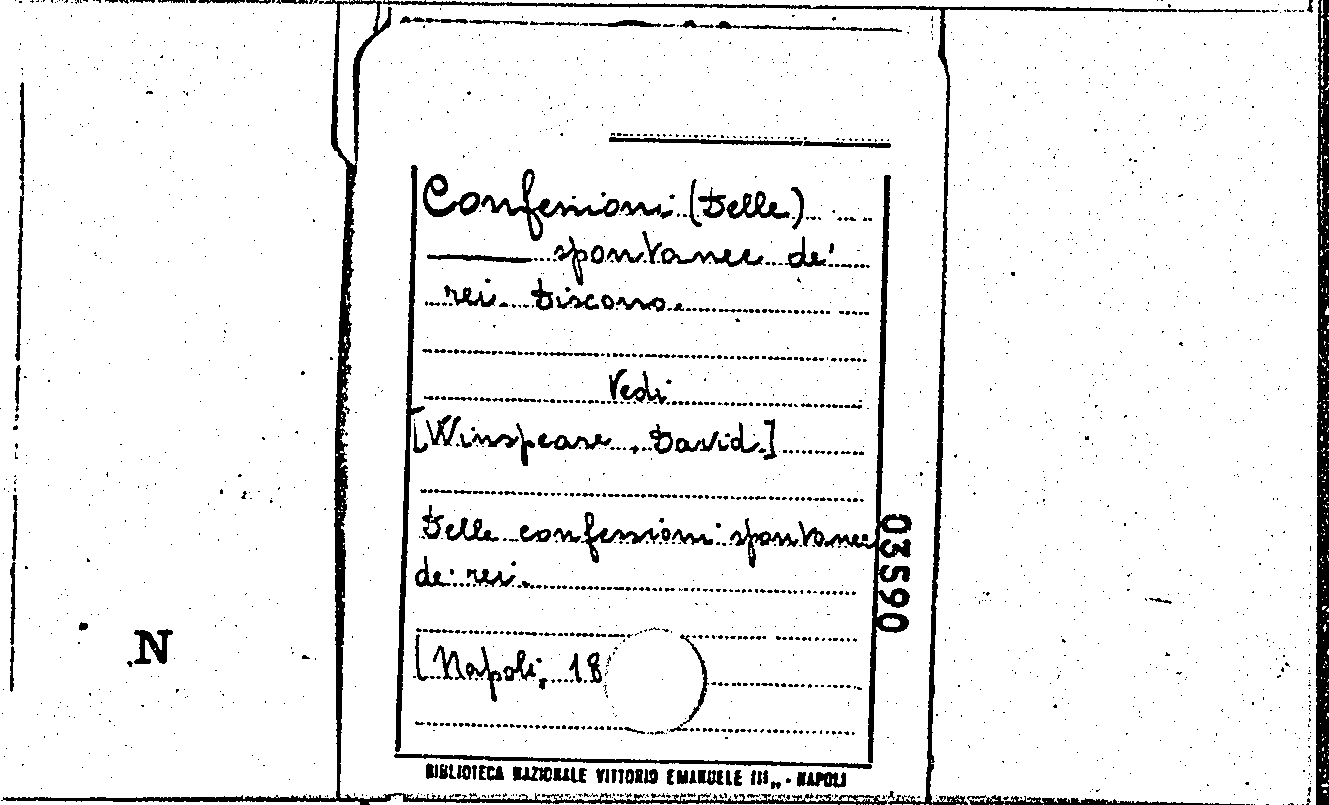 Confessioni (Delle)
spontanee de'
rei. Discorso.
Vedi
[Winspeare, David.]
Delle confessioni spontanee
de' rei.
[Napoli, 18
BIBLIOTECA NAZIONALE VITTORIO EMANUELE III,, - NAPOLI
03590
N